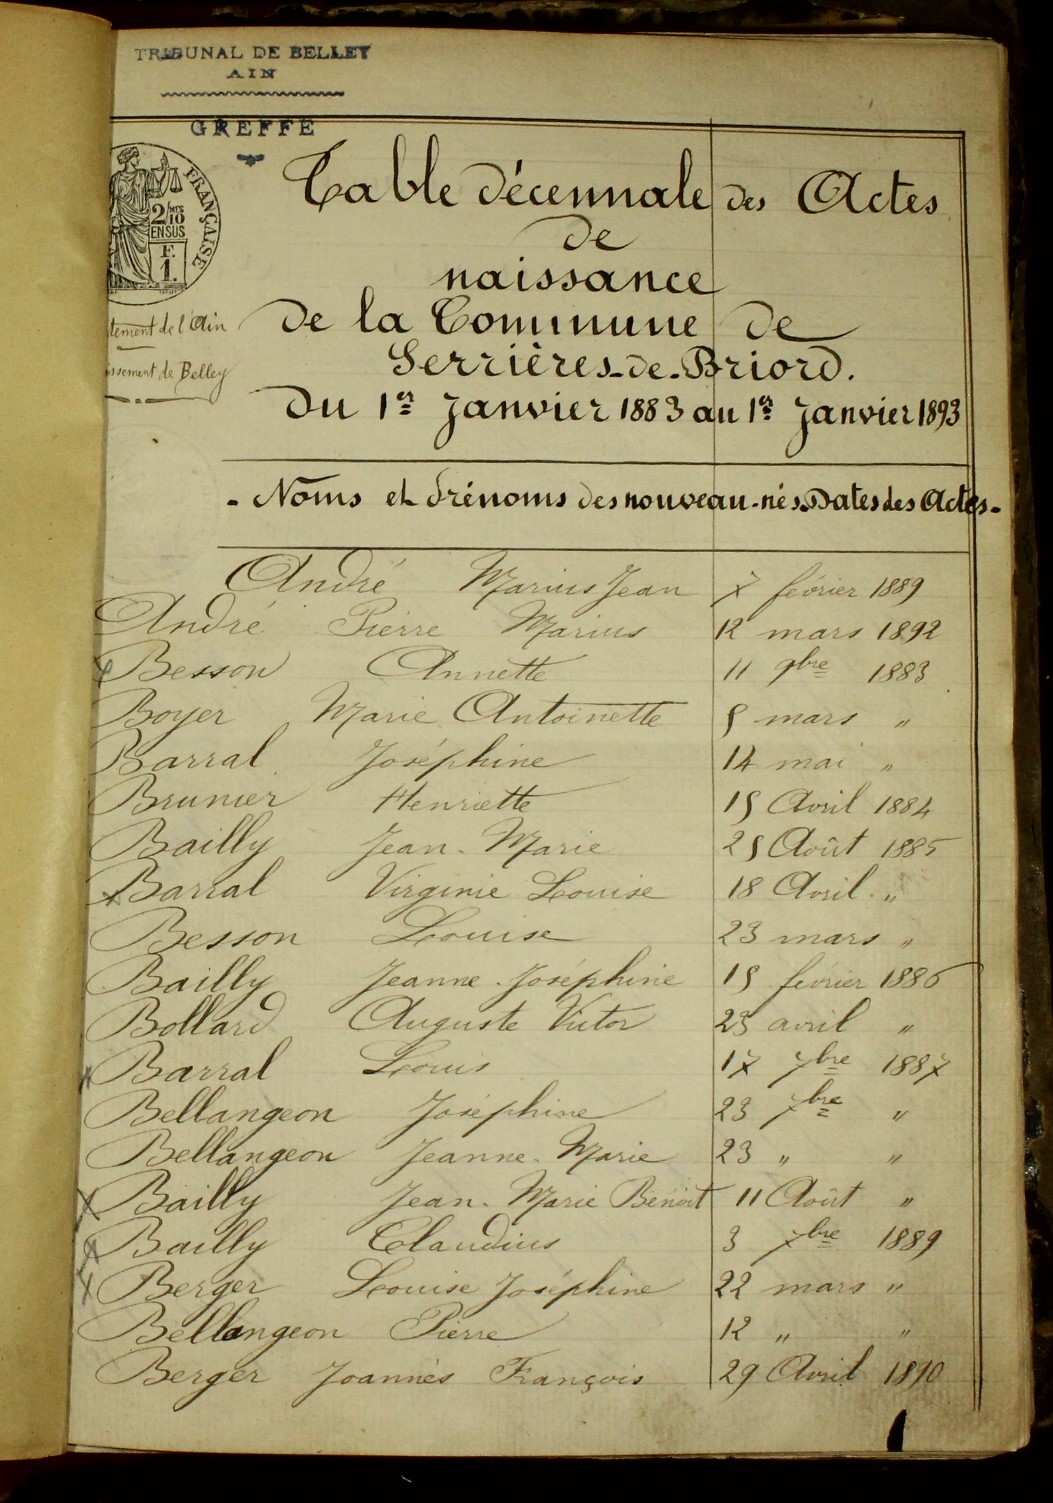 TRIBUNAL DE BELLEY
AIN
GREFFE
FRANÇAISE
2/10
EN SUS
F.
1.
tement de l'Ain
issement de Belley
Table décennale des Actes
de
naissance
de la Commune de
Serrières-de-Briord.
Du 1er Janvier 1883 au 1er Janvier 1893
- Noms et Prénoms des nouveau-nés. Dates des Actes -
André Marius Jean 7 février 1889
André Pierre Marius 12 mars 1892
x Besson Annette 11 9bre 1883
Boyer Marie Antoinette 5 mars "
Barral Joséphine 14 mai "
Brunier Henriette 15 Avril 1884
Bailly Jean-Marie 25 Août 1885
x Barral Virginie Louise 18 Avril "
Besson Louise 23 mars "
Bailly Jeanne-Joséphine 15 février 1886
Bollard Auguste Victor 23 avril "
x Barral Louis 17 7bre 1887
Bellangeon Joséphine 23 7bre "
Bellangeon Jeanne-Marie 23 " "
x Bailly Jean-Marie Benoit 11 Août "
x Bailly Claudius 3 7bre 1889
x Berger Louise Joséphine 22 mars "
Bellangeon Pierre 12 " "
Berger Joannès François 29 Avril 1890